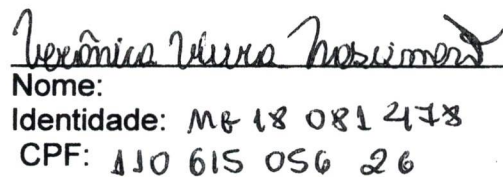 Verônica Vieira Nascimento
Nome:
Identidade: MG 18 081 478
CPF: 110 615 056 26